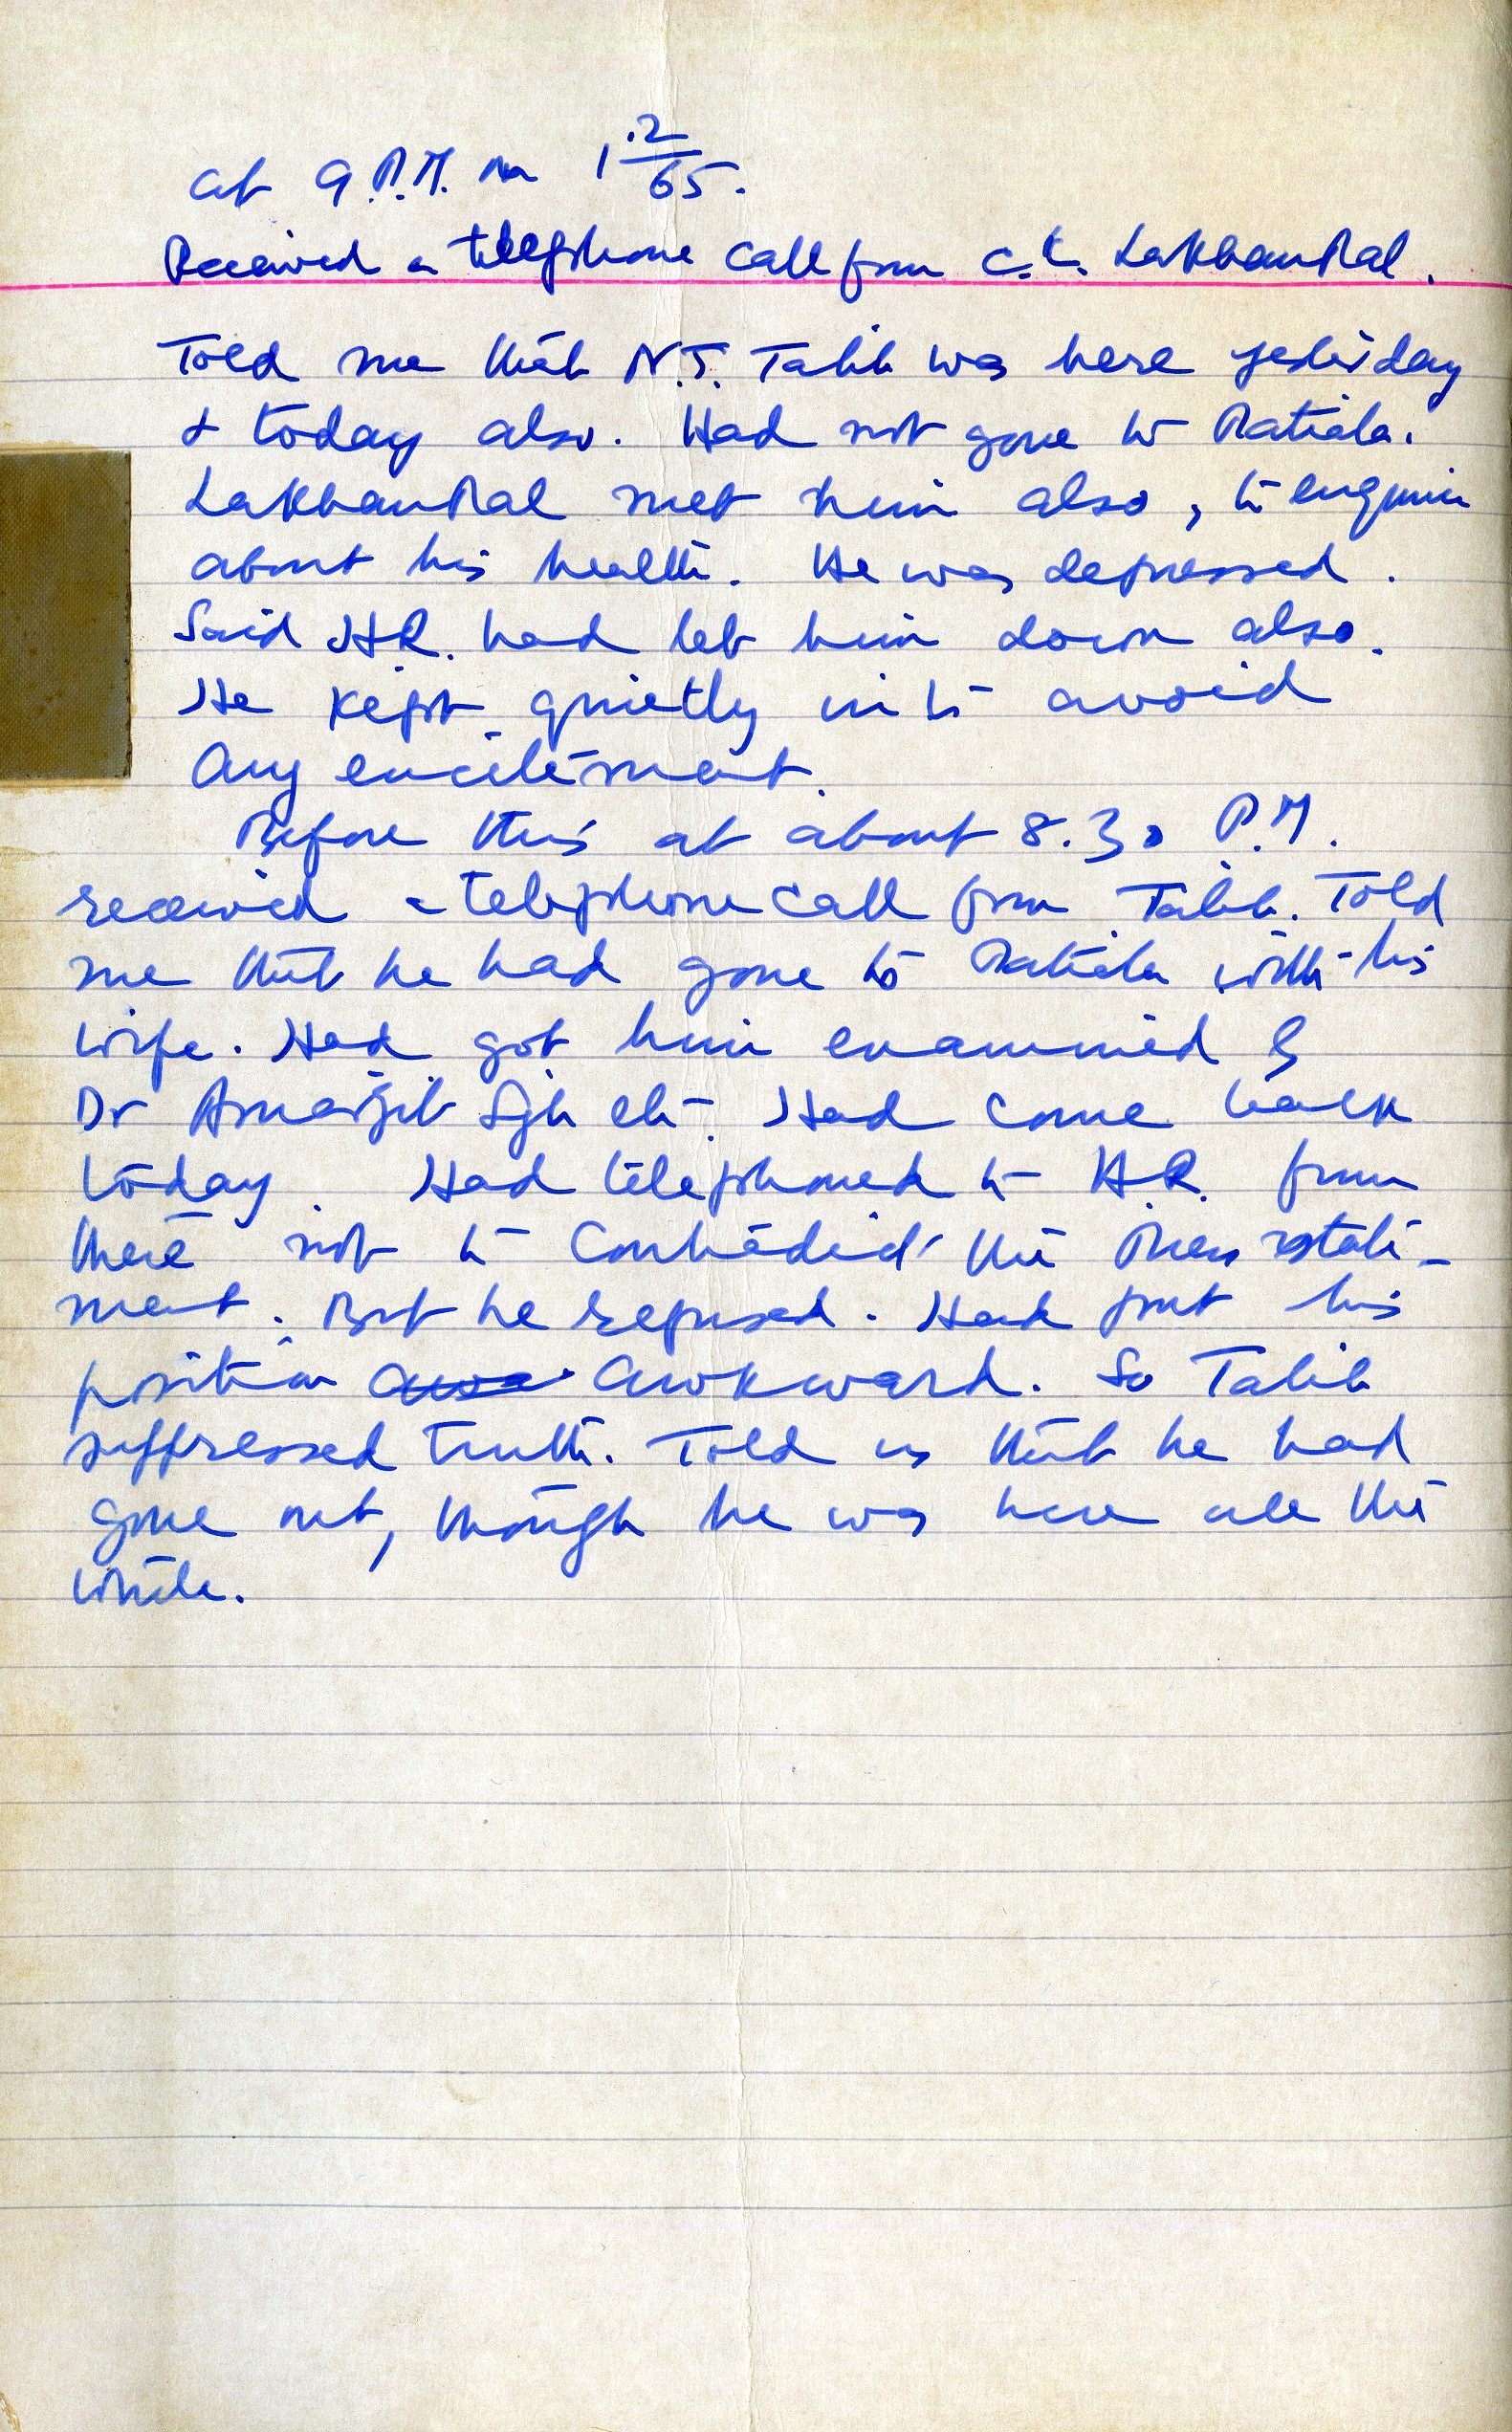 at 9 P.M. on 1 .2/65.
Received a telephone call from C.L. LakhanPal.
Told me that N.S. Talib was here yesterday
& today also. Had not gone to Patiala.
LakhanPal met him also, to enquire
about his health. He was depressed.
Said H.R. had let him down also.
He kept quietly in to avoid
any excitement.
Before this at about 8.30 P.M.
received a telephone call from Talib. Told
me that he had gone to Patiala with his
wife. Had got him examined by
Dr Amarjit Sgh etc. Had come back
today. Had telephoned to H.R. from
there not to contradict the Press state-
ment. But he refused. Had put his
position awkward. So Talib
suppressed truth. Told us that he had
gone out, though he was here all the
while.